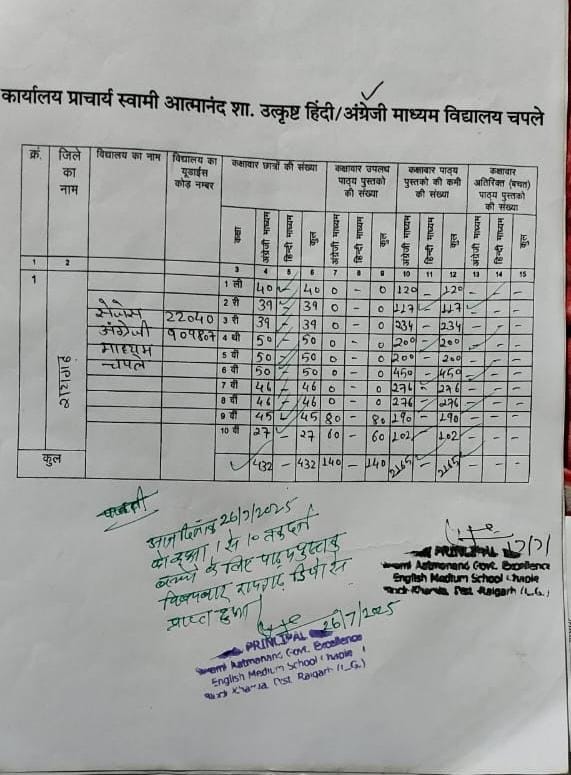 कार्यालय प्राचार्य स्वामी आत्मानंद शा. उत्कृष्ट हिंदी/अंग्रेजी माध्यम विद्यालय चपले
क्रं. जिले का नाम विद्यालय का नाम विद्यालय का यूडाईस कोड नम्बर कक्षावार छात्रों की संख्या कक्षावार उपलब्ध पाठ्य पुस्तको की संख्या कक्षावार पाठ्य पुस्तको की कमी की संख्या कक्षावार अतिरिक्त (बचत) पाठ्य पुस्तको की संख्या
कक्षा अंग्रेजी माध्यम हिन्दी माध्यम कुल अंग्रेजी माध्यम हिन्दी माध्यम कुल अंग्रेजी माध्यम हिन्दी माध्यम कुल अंग्रेजी माध्यम हिन्दी माध्यम कुल
1 2 3 4 5 6 7 8 9 10 11 12 13 14 15
1 रायगढ़ सेजेस अंग्रेजी माध्यम चपले 22040 909807
1 ली 40 - 40 0 - 0 120 - 120 - - -
2 री 39 - 39 0 - 0 117 - 117 - - -
3 री 39 - 39 0 - 0 234 - 234 - - -
4 थी 50 - 50 0 - 0 200 - 200 - - -
5 वी 50 - 50 0 - 0 200 - 200 - - -
6 वी 50 - 50 0 - 0 450 - 450 - - -
7 वी 46 - 46 0 - 0 276 - 276 - - -
8 वी 46 - 46 0 - 0 276 - 276 - - -
9 वी 45 - 45 80 - 80 190 - 190 - - -
10 वी 27 - 27 60 - 60 102 - 102 - - -
कुल 432 - 432 140 - 140 2165 - 2165 - - -
पावती
आज दिनांक 26/7/2025
को कक्षा 1 से 10 तक दर्ज
बच्चों के लिए पाठ्यपुस्तक
विषयवार रायगढ़ डिपो से
प्राप्त हुआ।
26/7/2025
PRINCIPAL
Swami Aatmanand Govt. Excellence
English Medium School Chaple
Dist. Raigarh (C.G.)
PRINCIPAL
Swami Aatmanand Govt. Excellence
English Medium School Chaple
Dist. Raigarh (C.G.)